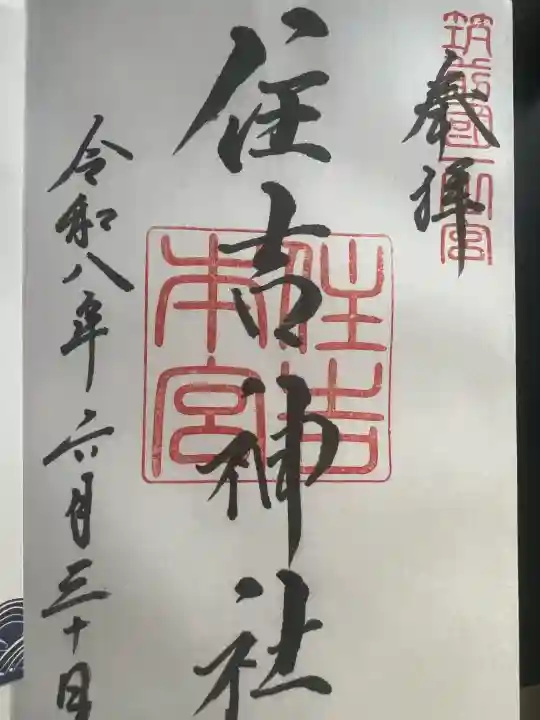 奉拝
筑前國一之宮
住吉神社
住吉本宮
令和八年六月三十日